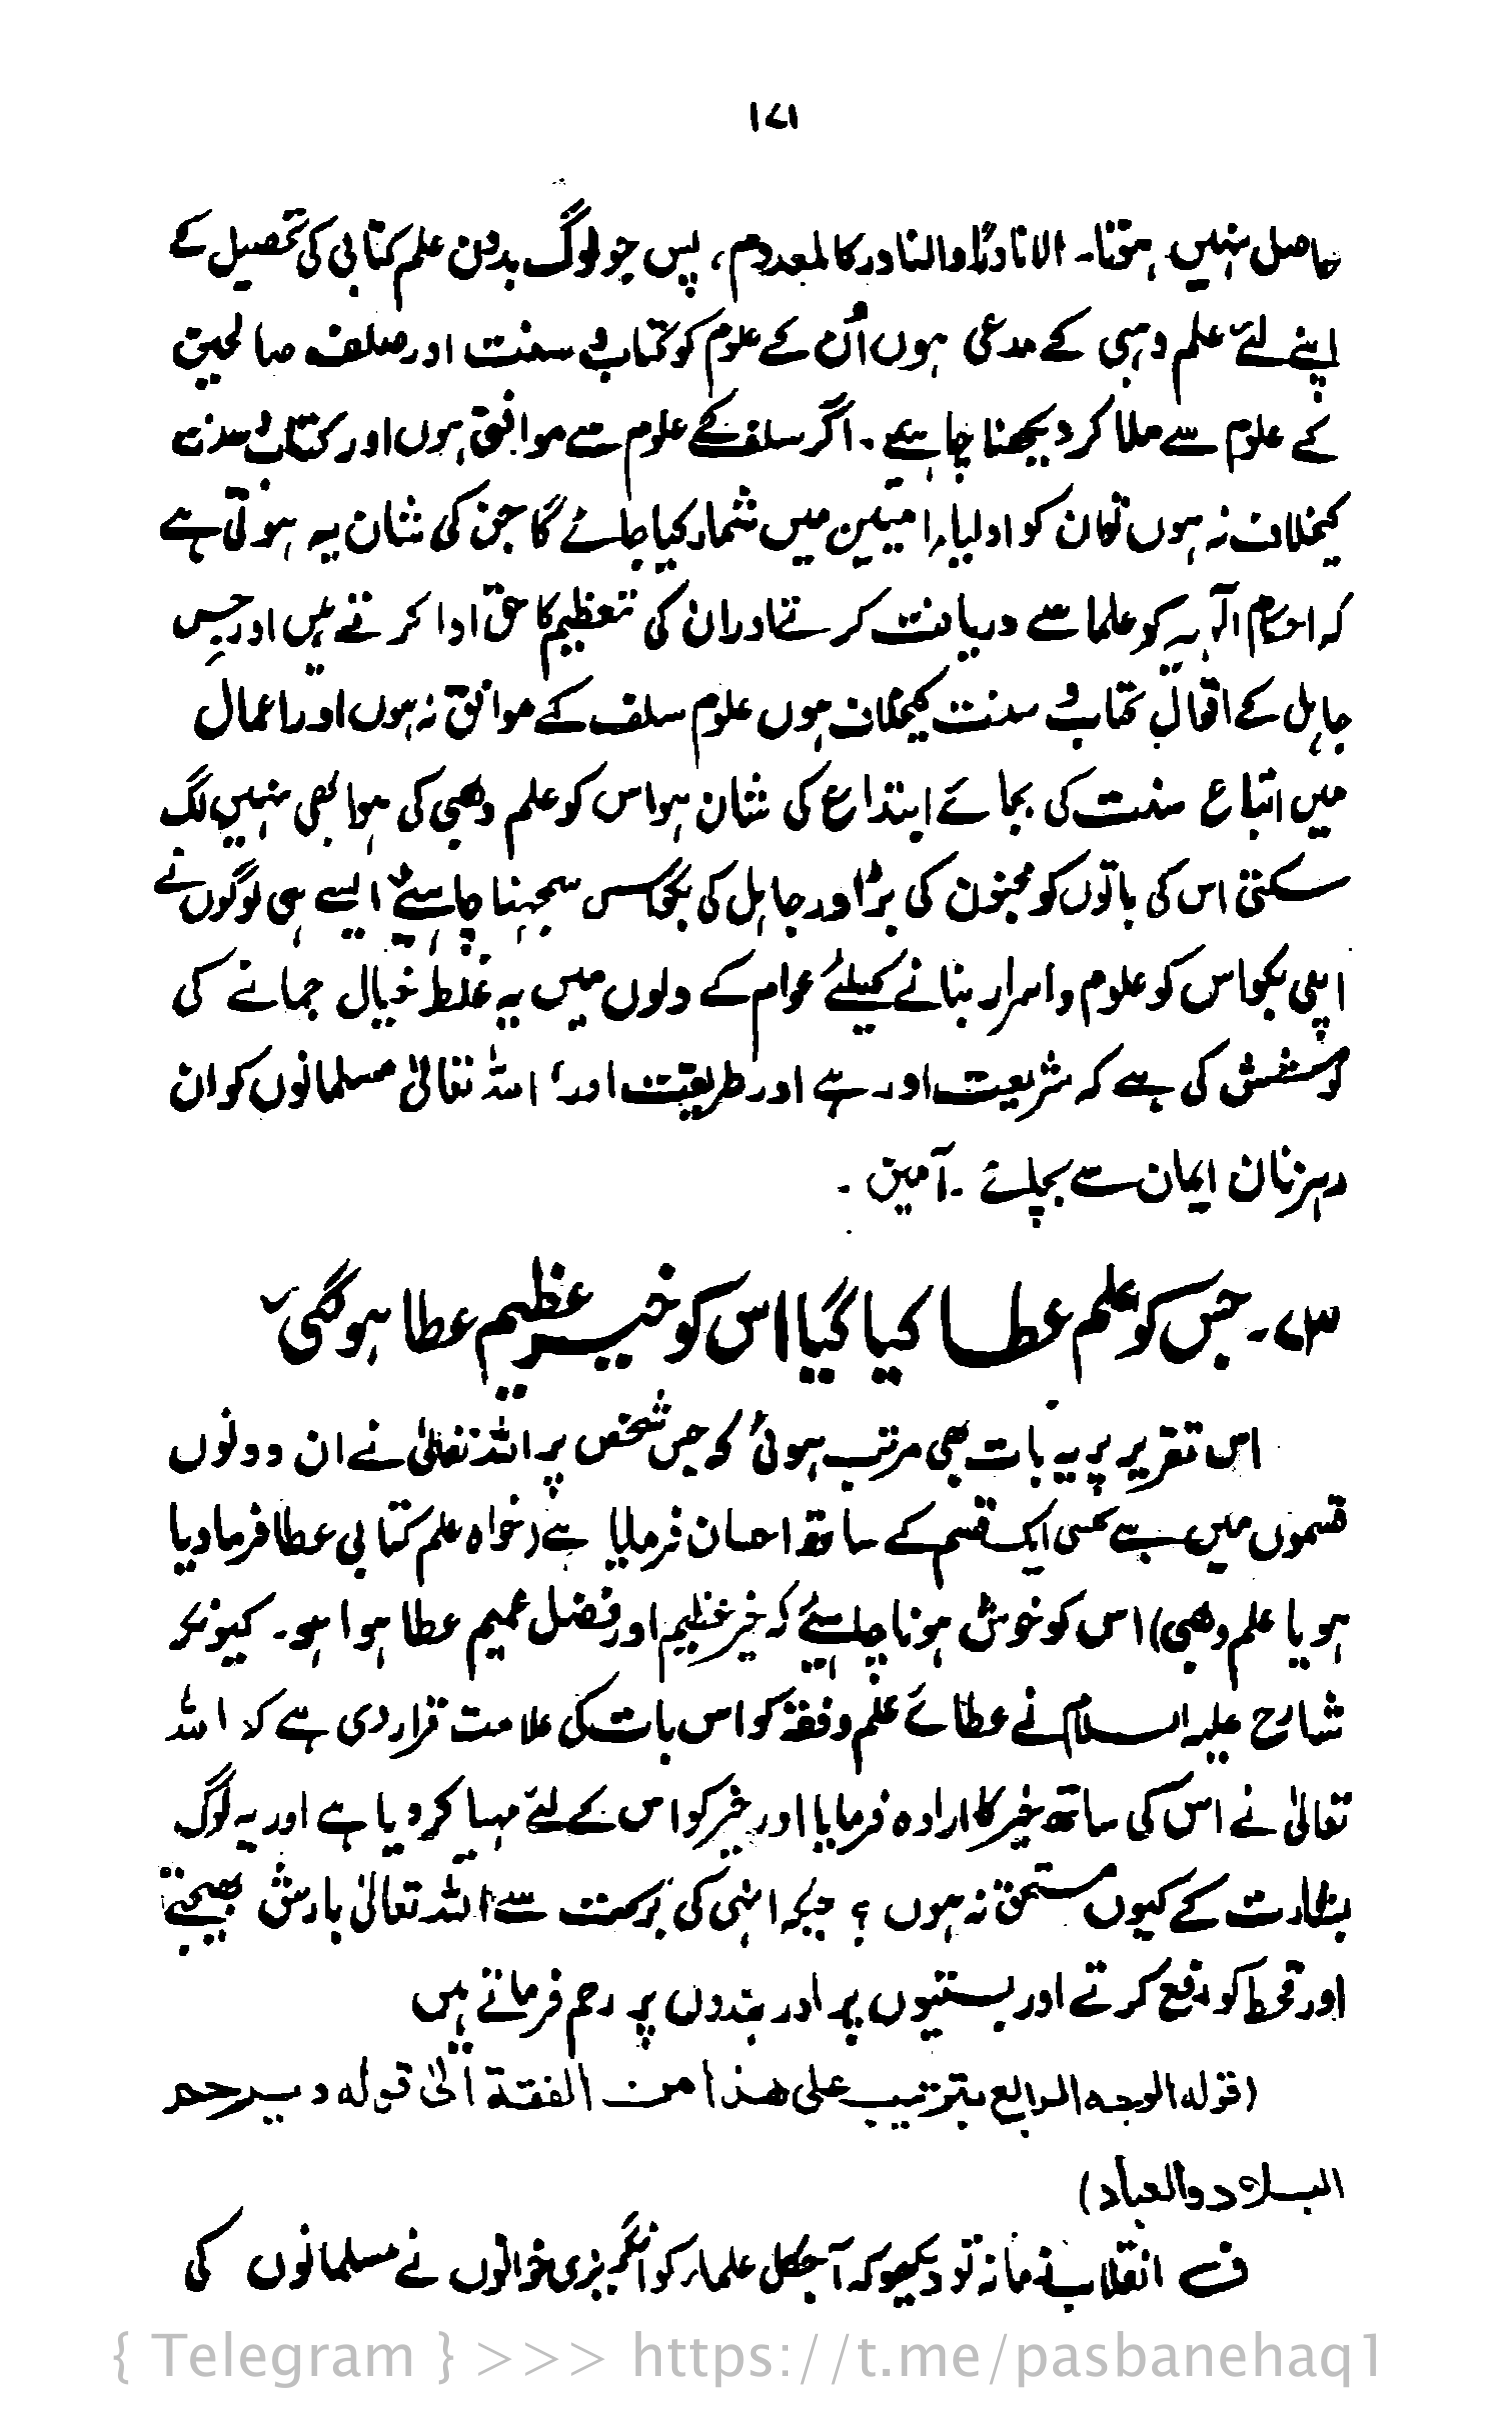 ۱۷۱
حاصل نہیں ہوتا۔ الا نادرًا والنادر کالمعدوم، پس جو لوگ بدون علم کتابی کی تحصیل کے
اپنے لئے علم وہبی کے مدعی ہوں اُن کے علوم کو کتاب و سنت اور سلف صالحین
کے علوم سے ملا کر دیکھنا چاہیے۔ اگر سلف کے علوم سے موافق ہوں اور کتاب و سنت
کیخلاف نہ ہوں تو ان کو اولیاء امیین میں شمار کیا جائے گا جن کی شان یہ ہوتی ہے
کہ احکام الٰہیہ کو علما سے دریافت کرتے اور ان کی تعظیم کا حق ادا کرتے ہیں اور جس
جاہل کے اقوال کتاب و سنت کیخلاف ہوں علوم سلف کے موافق نہ ہوں اور اعمال
میں اتباع سنت کی بجائے ابتداع کی شان ہو اس کو علم وھبی کی ہوا بھی نہیں لگ
سکتی اس کی باتوں کو مجنون کی بڑ اور جاہل کی بکواس سمجہنا چاہئے ایسے ہی لوگوں نے
اپنی بکواس کو علوم و اسرار بنانے کیلئے عوام کے دلوں میں یہ غلط خیال جمانے کی
کوشش کی ہے کہ شریعت اور ہے اور طریقت اور، اللہ تعالیٰ مسلمانوں کو ان
رہزنان ایمان سے بچائے ۔ آمین ۔
۷۳۔ جس کو علم عطا کیا گیا اس کو خیر عظیم عطا ہو گئی
اس تقریر پر یہ بات بھی مرتب ہوئی کہ جس شخص پر اللہ تعالیٰ نے ان دونوں
قسموں میں سے کسی ایک قسم کے ساتھ احسان فرمایا ہے (خواہ علم کتابی عطا فرما دیا
ہو یا علم وھبی) اس کو خوش ہونا چاہیئے کہ خیر عظیم اور فضل عمیم عطا ہوا ہو۔ کیونکہ
شارح علیہ السلام نے عطائے علم و فقہ کو اس بات کی علامت قرار دی ہے کہ اللہ
تعالیٰ نے اس کی ساتھ خیر کا ارادہ فرمایا اور خیر کو اس کے لئے مہیا کر دیا ہے اور یہ لوگ
بشارت کے کیوں مستحق نہ ہوں ؟ جبکہ انہی کی برکت سے اللہ تعالیٰ بارش بھیجتے
اور قحط کو دفع کرتے اور بستیوں پر اور بندوں پر رحم فرماتے ہیں
(قوله الوجه الرابع يترتيب على هذا من الفقة الىٰ قوله و يرحم
البلاد والعباد)
ف انقلاب زمانہ تو دیکھو کہ آجکل علماء کو انگریزی خوانوں نے مسلمانوں کی
{ Telegram } >>> https://t.me/pasbanehaq1